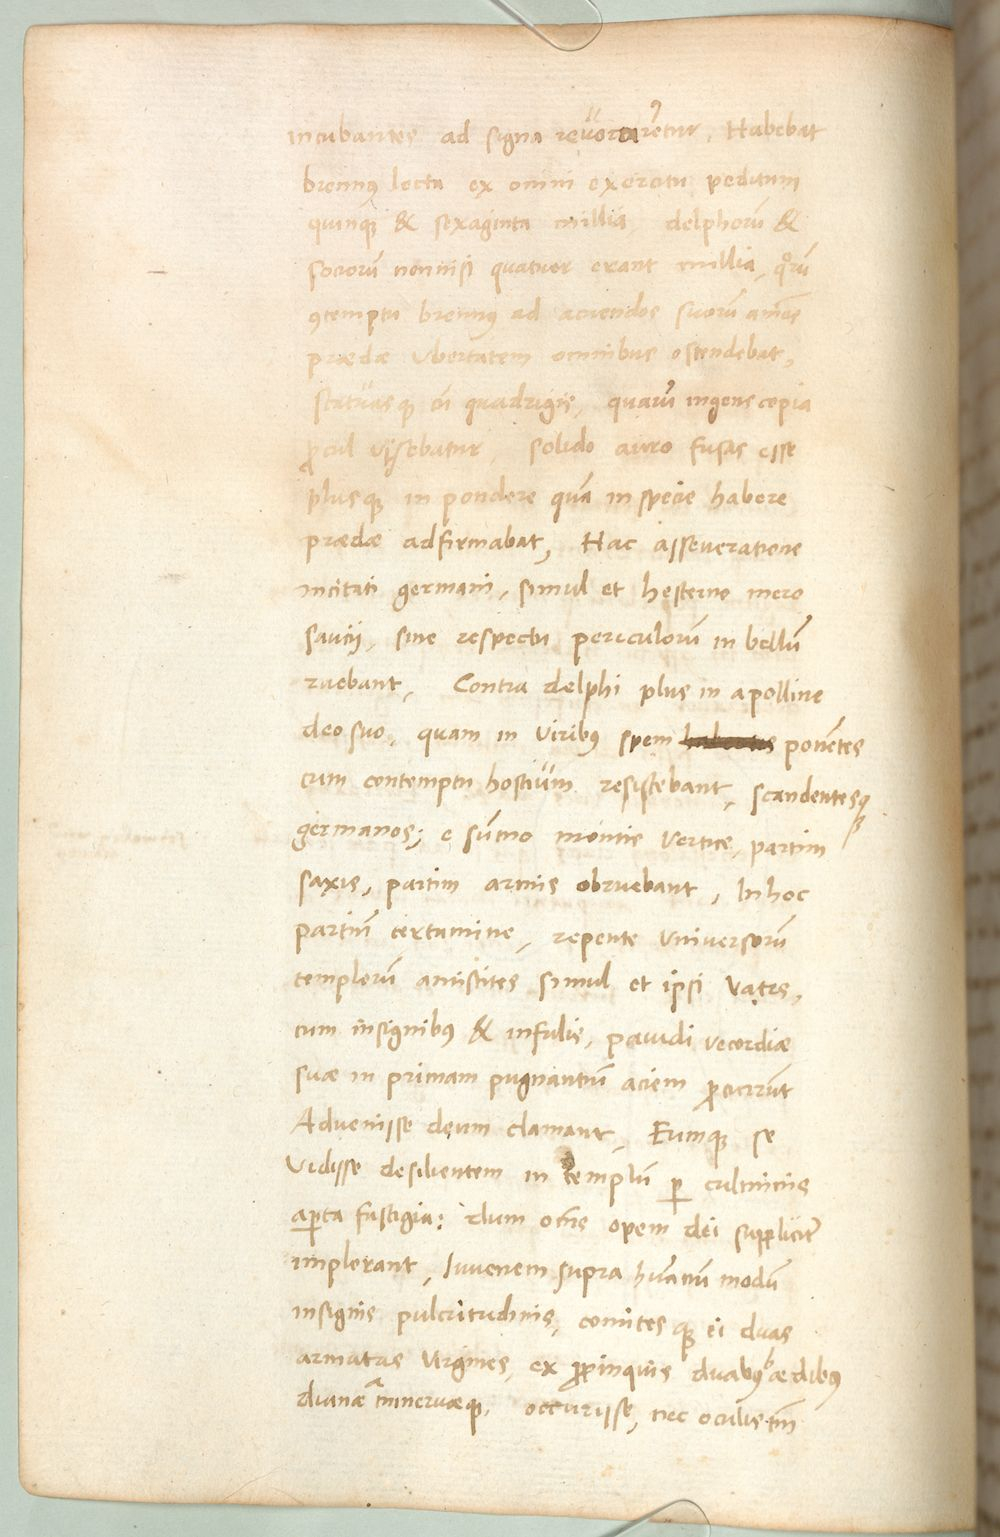 incubantes ad signa revortarentur. Habebat
brennus lecta ex omni exercitu peditum
quinque & sexaginta millia, delphorū &
sociorū nonnisi quatuor erant millia, quorū
contemptu brennus ad acuendos suorū animos
prædæ ubertatem omnibus ostendebat,
statuasque cū quadrigis, quarū ingens copia
procul visebatur, solido auro fusas esse
plusque in pondere quā in specie habere
prædæ adfirmabat, Hac asseveratione
incitati germani, simul et hesterno mero
saucij, sine respectu periculorū in bellū
ruebant, Contra delphi plus in apolline
deo suo, quam in viribus spem ponentes
cum contemptu hostium resistebant, scandentesque
germanos; e sūmo montis vertice, partim
saxis, partim armis obruebant, In hoc
partiū certamine, repente universorū
templorū antistites simul et ipsi vates,
cum insignibus & infulis, pavidi vecordiæ
suæ in primam pugnantiū aciem procurrūt
Advenisse deum clamant, Eumque se
vidisse desilientem in templū per culminis
aperta fastigia: dum omnes opem dei suppliciter
implorant, Iuvenem supra humanū modū
insignis pulcritudinis, comitesque ei duas
armatas virgines, ex propinquis duabus ædibus
dianæ minervæque, occurrisse, nec oculis tm̄